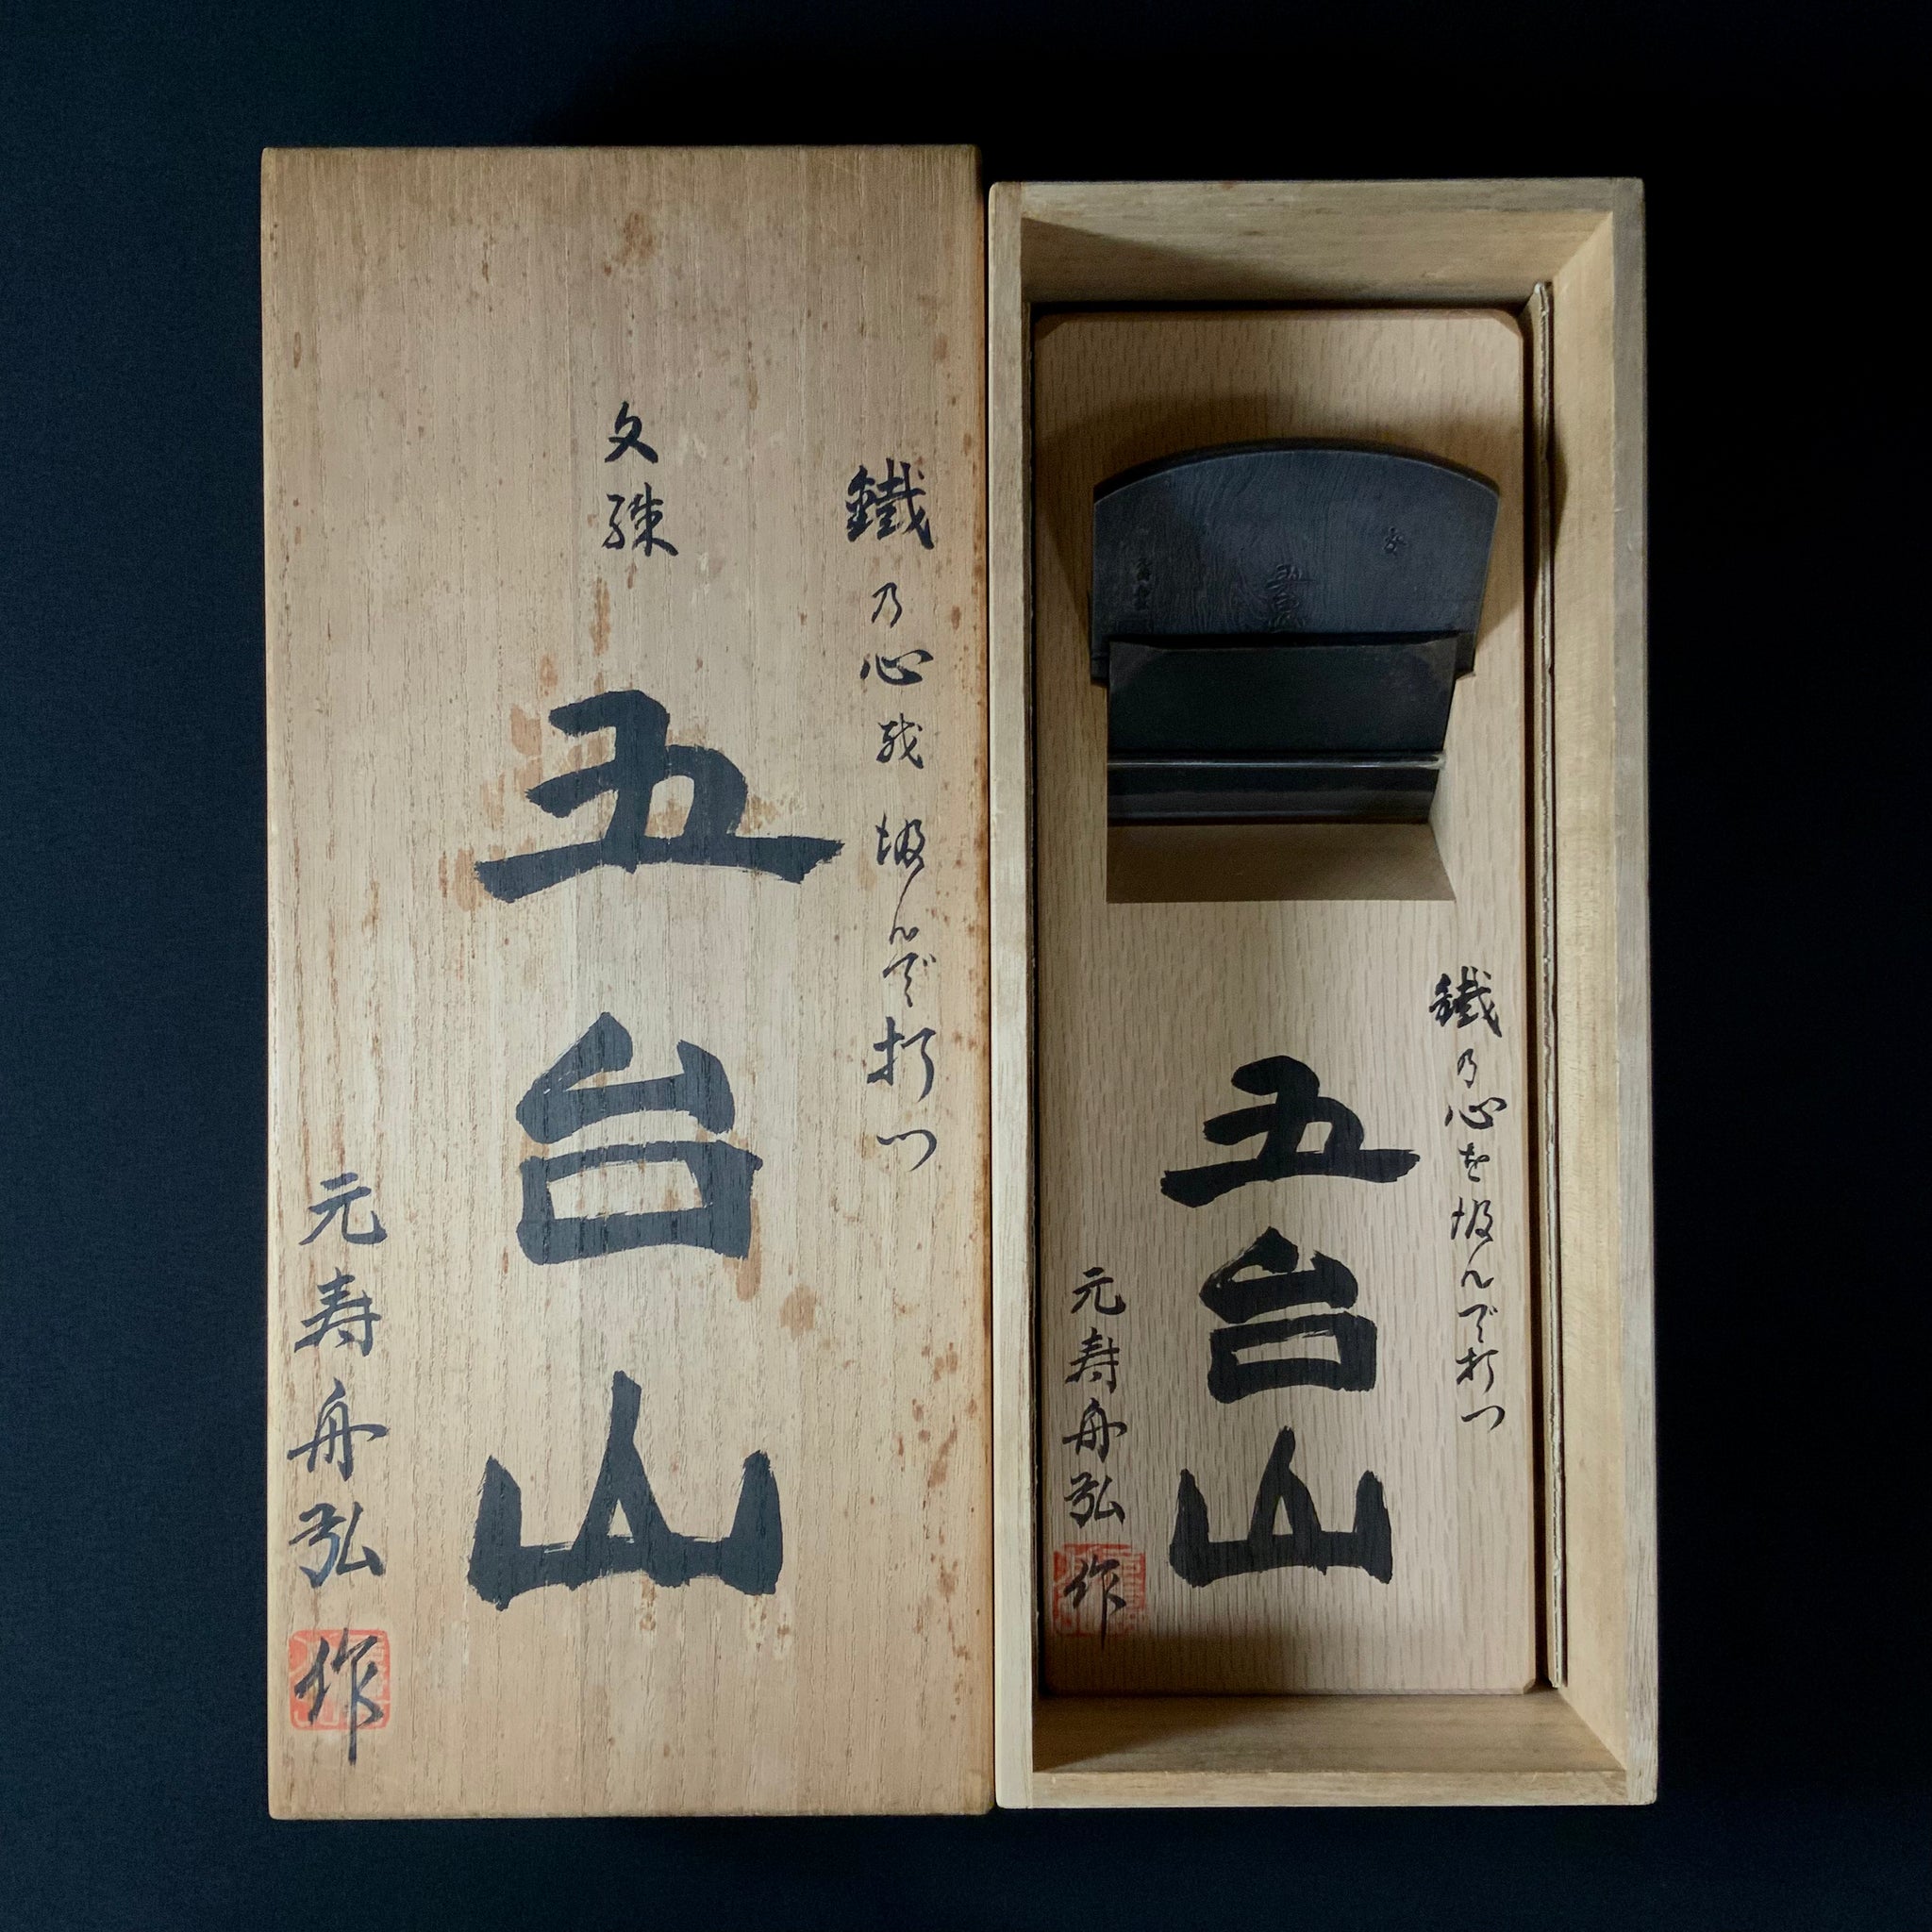 鐵乃心越汲んで打つ
文殊
五台山
元寿舟弘作
鐵乃心を汲んで打つ
五台山
元寿舟弘作